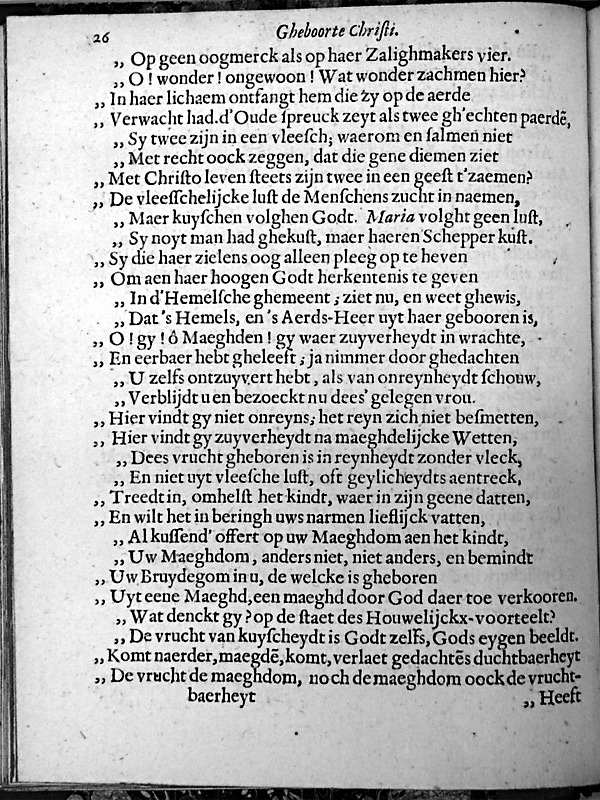 26 Gheboorte Chriſti.
„ Op geen oogmerck als op haer Zalighmakers vier.
„ O ! wonder ! ongewoon ! Wat wonder zachmen hier?
„ In haer lichaem ontfangt hem die zy op de aerde
„ Verwacht had. d'Oude ſpreuck zeyt als twee gh'echten paerdē,
„ Sy twee zijn in een vleeſch; waerom en ſalmen niet
„ Met recht oock zeggen, dat die gene diemen ziet
„ Met Chriſto leven ſteets zijn twee in een geeſt t'zaemen?
„ De vleeſſchelijcke luſt de Menſchens zucht in naemen,
„ Maer kuyſchen volghen Godt. Maria volght geen luſt,
„ Sy noyt man had ghekuſt, maer haeren Schepper kuſt.
„ Sy die haer zielens oog alleen pleeg op te heven
„ Om aen haer hoogen Godt herkentenis te geven
„ In d'Hemelſche ghemeent ; ziet nu, en weet ghewis,
„ Dat 's Hemels, en 's Aerds-Heer uyt haer gebooren is,
„ O ! gy ! ô Maeghden ! gy waer zuyverheydt in wrachte,
„ En eerbaer hebt gheleeft ; ja nimmer door ghedachten
„ U zelfs ontzuyvert hebt, als van onreynheydt ſchouw,
„ Verblijdt u en bezoeckt nu dees' gelegen vrou.
„ Hier vindt gy niet onreyns; het reyn zich niet beſmetten,
„ Hier vindt gy zuyverheydt na maeghdelijcke Wetten,
„ Dees vrucht gheboren is in reynheydt zonder vleck,
„ En niet uyt vleeſche luſt, oft geylicheydts aentreck,
„ Treedt in, omhelſt het kindt, waer in zijn geene datten,
„ En wilt het in beringh uws narmen lieflijck vatten,
„ Al kuſſend' offert op uw Maeghdom aen het kindt,
„ Uw Maeghdom, anders niet, niet anders, en bemindt
„ Uw Bruydegom in u, de welcke is gheboren
„ Uyt eene Maeghd, een maeghd door God daer toe verkooren.
„ Wat denckt gy ? op de ſtaet des Houwelijckx-voorteelt?
„ De vrucht van kuyſcheydt is Godt zelfs, Gods eygen beeldt.
„ Komt naerder, maegdē, komt, verlaet gedachtēs duchtbaerheyt
„ De vrucht de maeghdom, noch de maeghdom oock de vrucht-
baerheyt „ Heeft